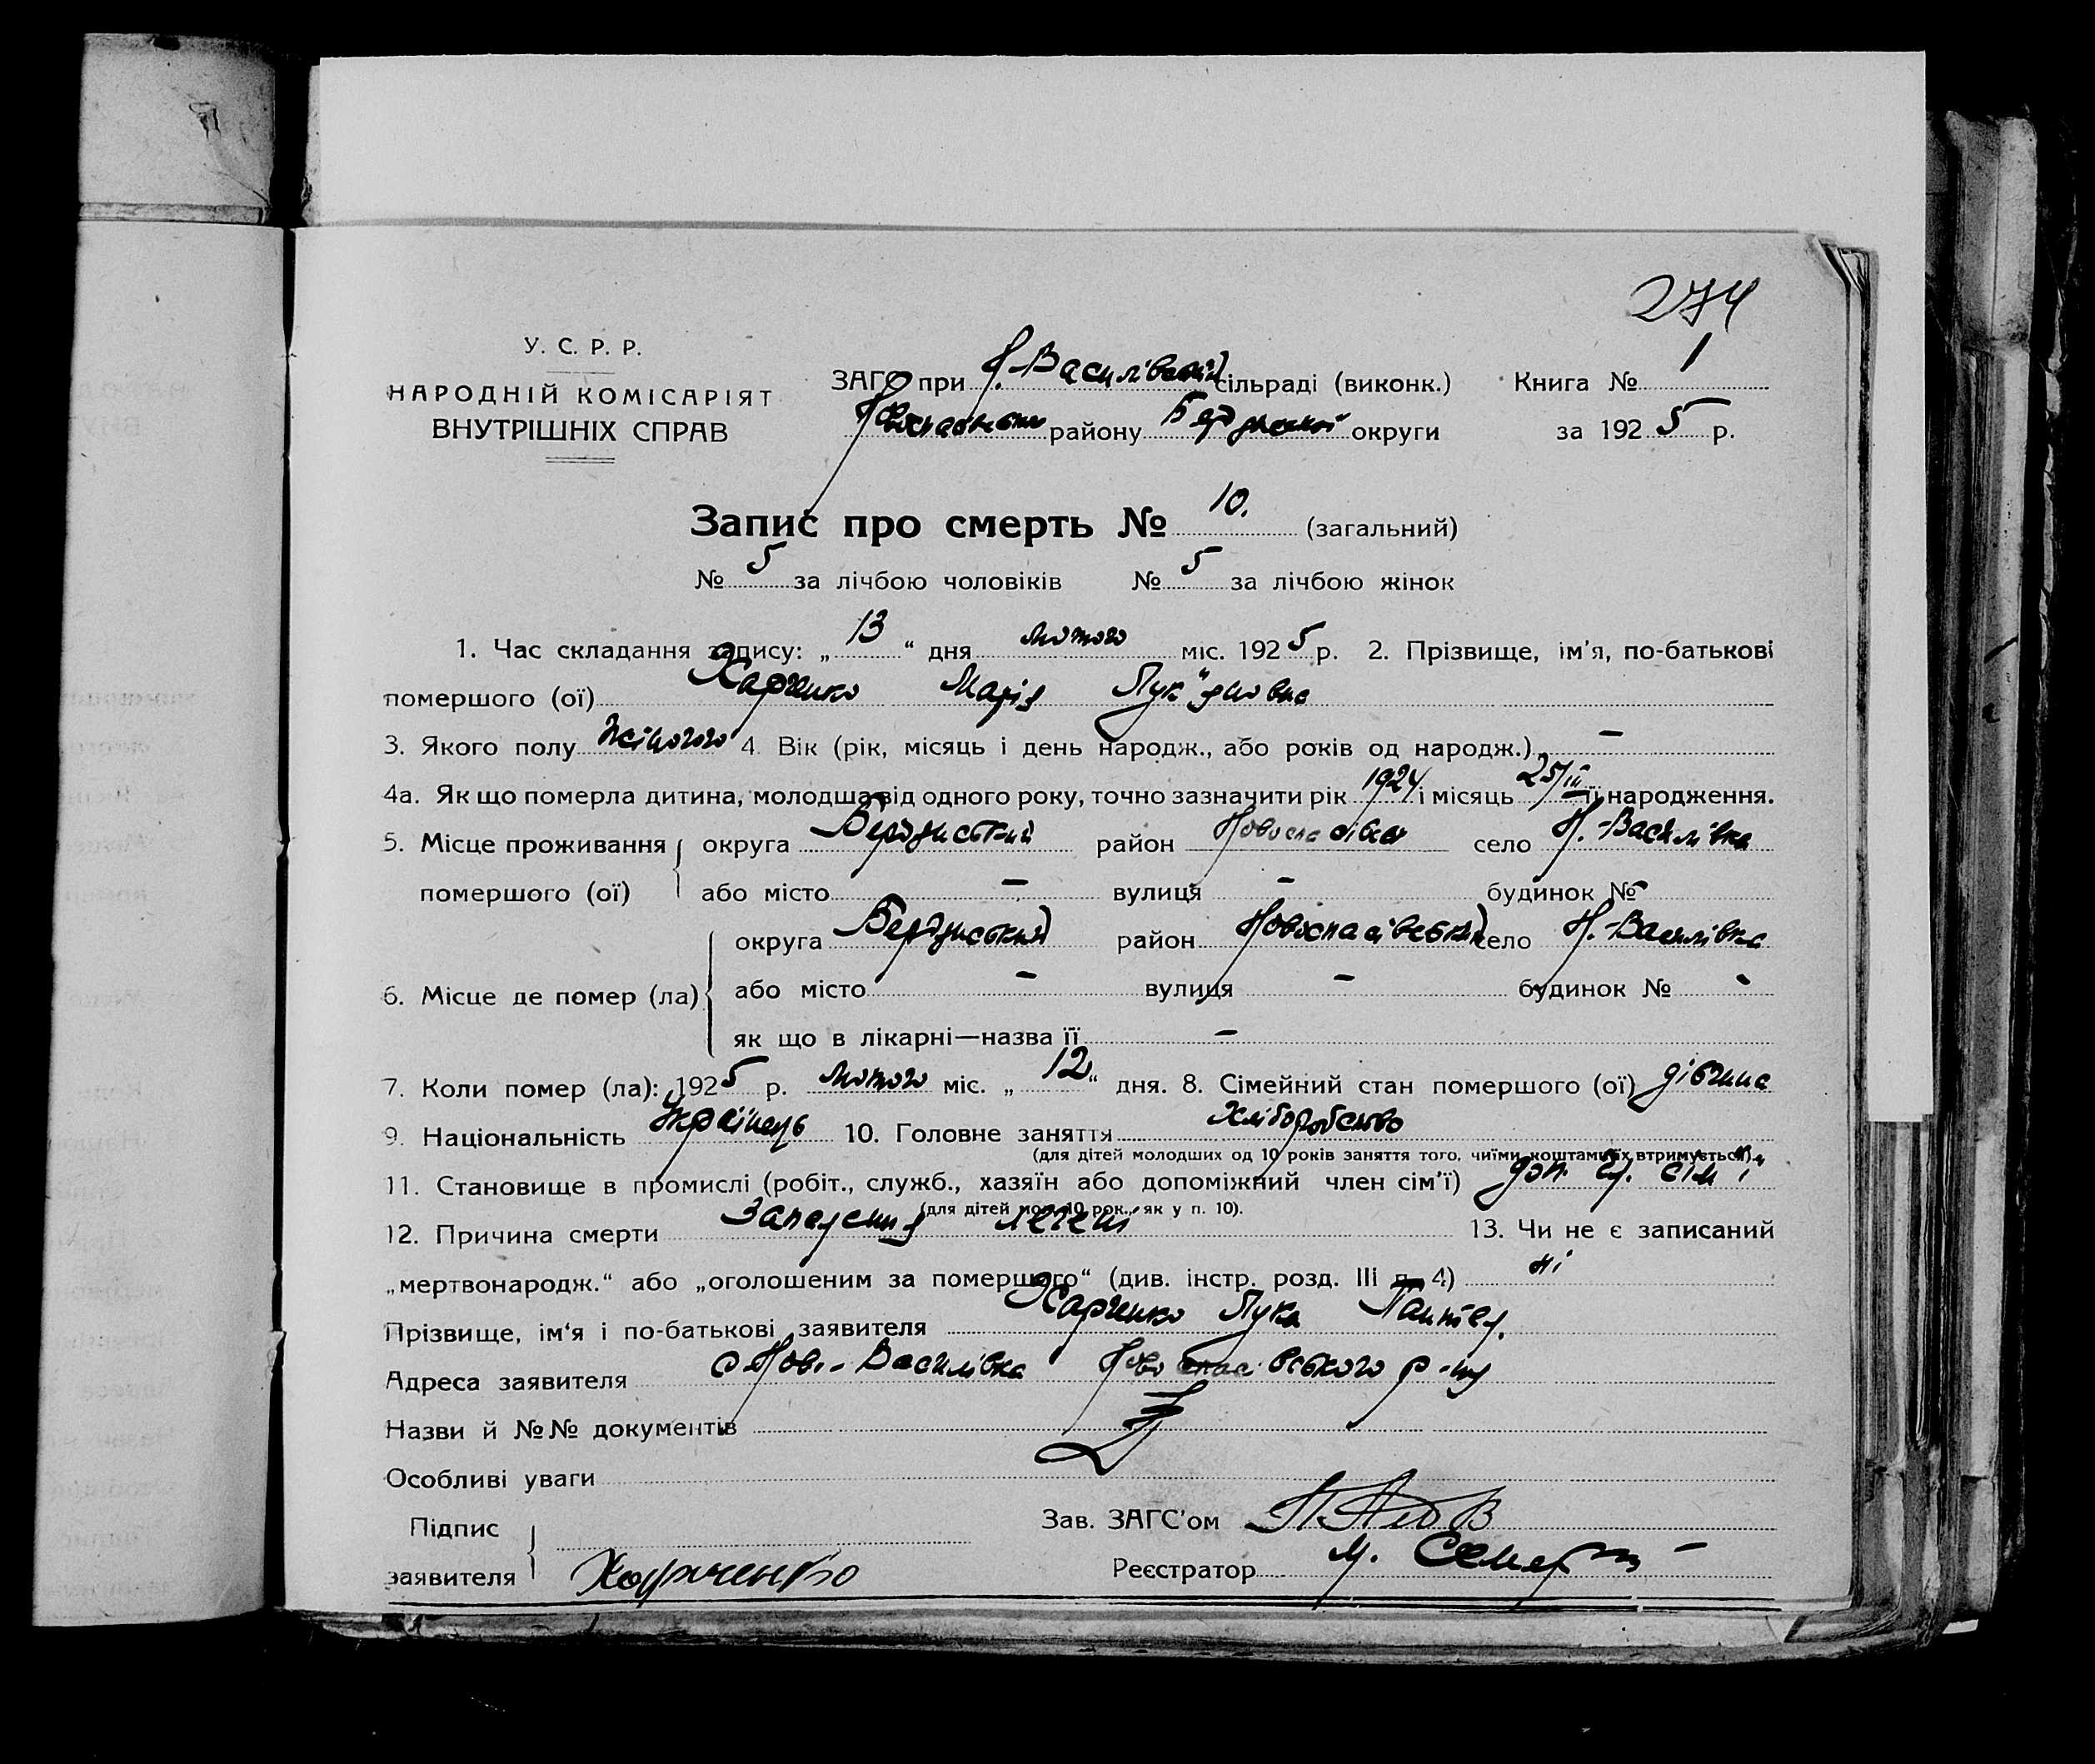 274
У. С. Р. Р.
НАРОДНІЙ КОМІСАРІЯТ
ВНУТРІШНІХ СПРАВ
ЗАГС при Н.-Василівській сільраді (виконк.) Книга № 1
району Бердянської округи за 1925 р.
Запис про смерть № 10. (загальний)
№ 5 за лічбою чоловіків № 5 за лічбою жінок
1. Час складання запису: „13“ дня лютого міс. 1925 р. 2. Прізвище, ім’я, по-батькові
помершого (ої) Харченко Марія Лук"яновна
3. Якого полу жіночого 4. Вік (рік, місяць і день народж., або років од народж.) –
4а. Як що померла дитина, молодша від одного року, точно зазначити рік 1924 і місяць 25/III її народження.
5. Місце проживання помершого (ої) округа Бердянський район село Н.-Василівка
або місто – вулиця – будинок № –
6. Місце де помер (ла) округа Бердянський район Новоспасівський село Н.-Василівка
або місто – вулиця – будинок № -
як що в лікарні—назва її –
7. Коли помер (ла): 1925 р. лютого міс. „12“ дня. 8. Сімейний стан помершого (ої) дівчина
9. Національність Українець 10. Головне заняття хліборобство
(для дітей молодших од 10 років заняття того, чиїми коштами їх втримується).
11. Становище в промислі (робіт., служб., хазяїн або допоміжний член сім’ї) доп. чл. сім"ї
(для дітей мол. 10 рок., як у п. 10).
12. Причина смерти Запалення легені 13. Чи не є записаний
„мертвонародж.“ або „оголошеним за помершого“ (див. інстр. розд. III п. 4) ні
Прізвище, ім‘я і по-батькові заявителя Харченко Лука Пантел.
Адреса заявителя с Ново-Василівка Новоспасівського р-ну
Назви й №№ документів
Особливі уваги
Підпис заявителя Харченко
Зав. ЗАГС’ом
Реєстратор М.